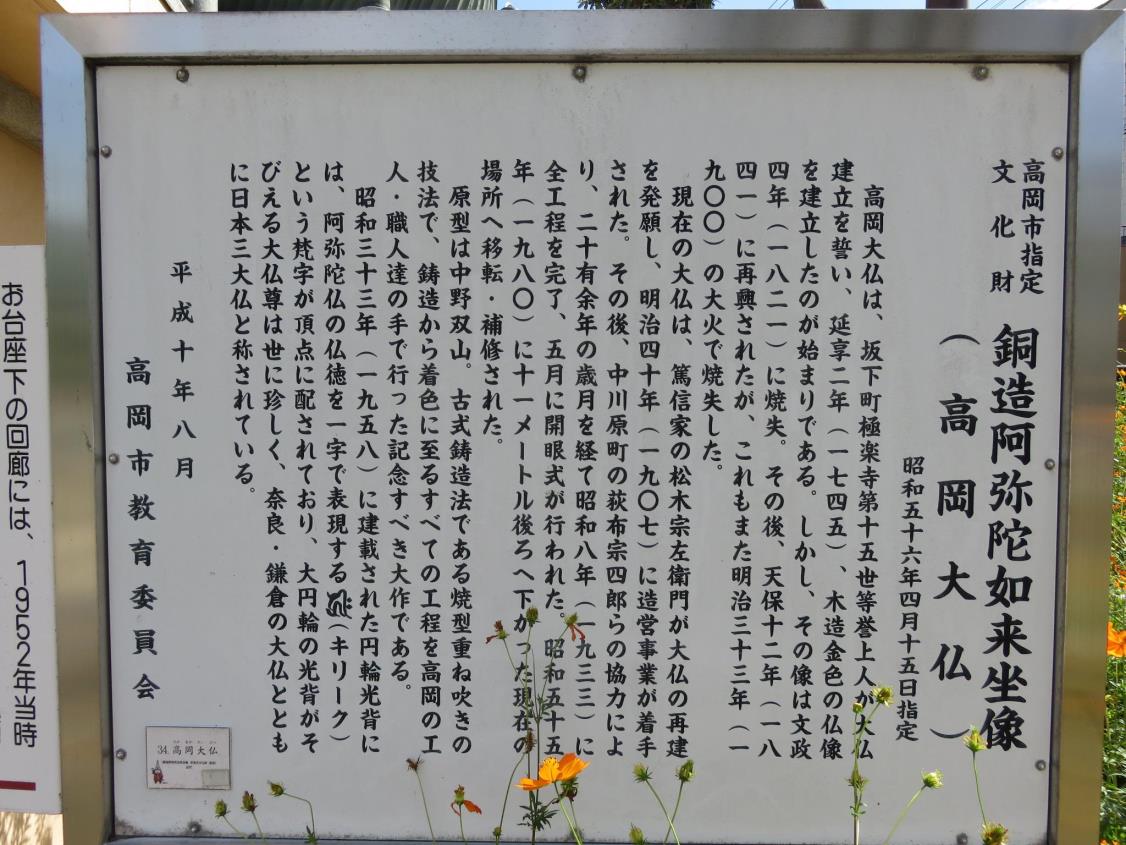 高岡市指定
文化財
銅造阿弥陀如来坐像
（高岡大仏）
昭和五十六年四月十五日指定
高岡大仏は、坂下町極楽寺第十五世等誉上人が大仏
建立を誓い、延享二年（一七四五）、木造金色の仏像
を建立したのが始まりである。しかし、その像は文政
四年（一八二一）に焼失。その後、天保十二年（一八
四一）に再興されたが、これもまた明治三十三年（一
九〇〇）の大火で焼失した。
現在の大仏は、篤信家の松木宗左衛門が大仏の再建
を発願し、明治四十年（一九〇七）に造営事業が着手
された。その後、中川原町の荻布宗四郎らの協力によ
り、二十有余年の歳月を経て昭和八年（一九三三）に
全工程を完了、五月に開眼式が行われた。昭和五十五
年（一九八〇）に十一メートル後ろへ下がった現在の
場所へ移転・補修された。
原型は中野双山。古式鋳造法である焼型重ね吹きの
技法で、鋳造から着色に至るすべての工程を高岡の工
人・職人達の手で行った記念すべき大作である。
昭和三十三年（一九五八）に建載された円輪光背に
は、阿弥陀仏の仏徳を一字で表現する（キリーク）
という梵字が頂点に配されており、大円輪の光背がそ
びえる大仏尊は世に珍しく、奈良・鎌倉の大仏ととも
に日本三大仏と称されている。
平成十年八月
高岡市教育委員会
34. 高岡大仏
お台座下の回廊には、1952年当時